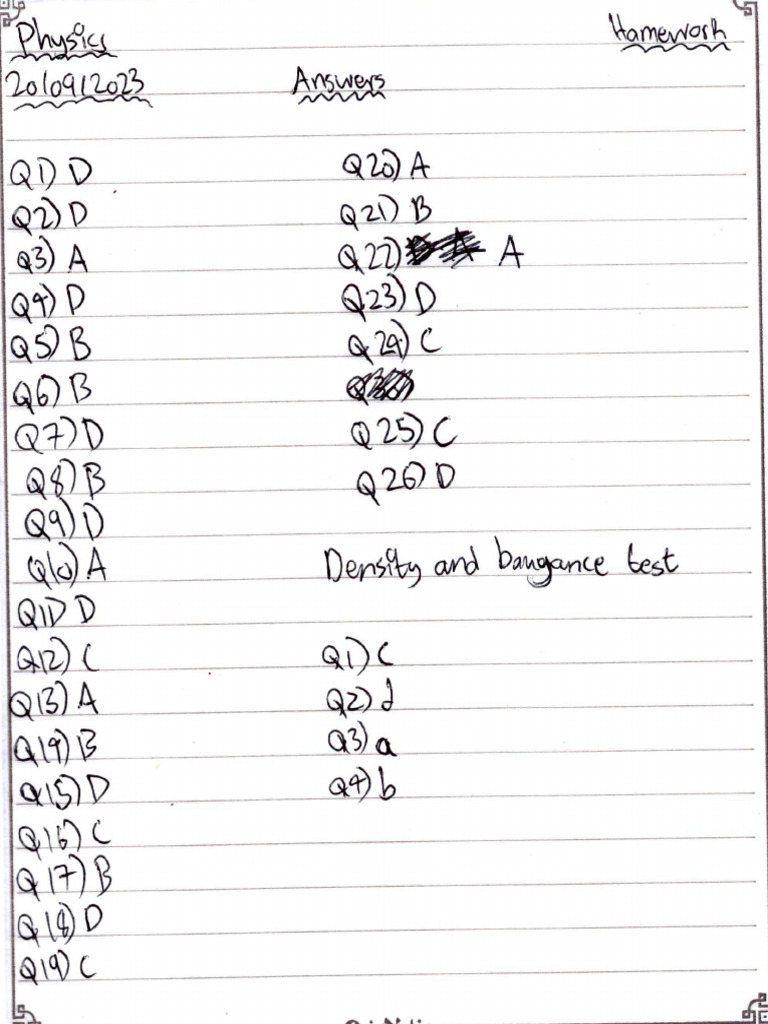 Physics
Homework
20/09/2023
Answers
Q1) D
Q2) D
Q3) A
Q4) D
Q5) B
Q6) B
Q7) D
Q8) B
Q9) D
Q10) A
Q11) D
Q12) C
Q13) A
Q14) B
Q15) D
Q16) C
Q17) B
Q18) D
Q19) C
Q20) A
Q21) B
Q22) A
Q23) D
Q24) C
Q25) C
Q26) D
Density and baugance test
Q1) C
Q2) d
Q3) a
Q4) b